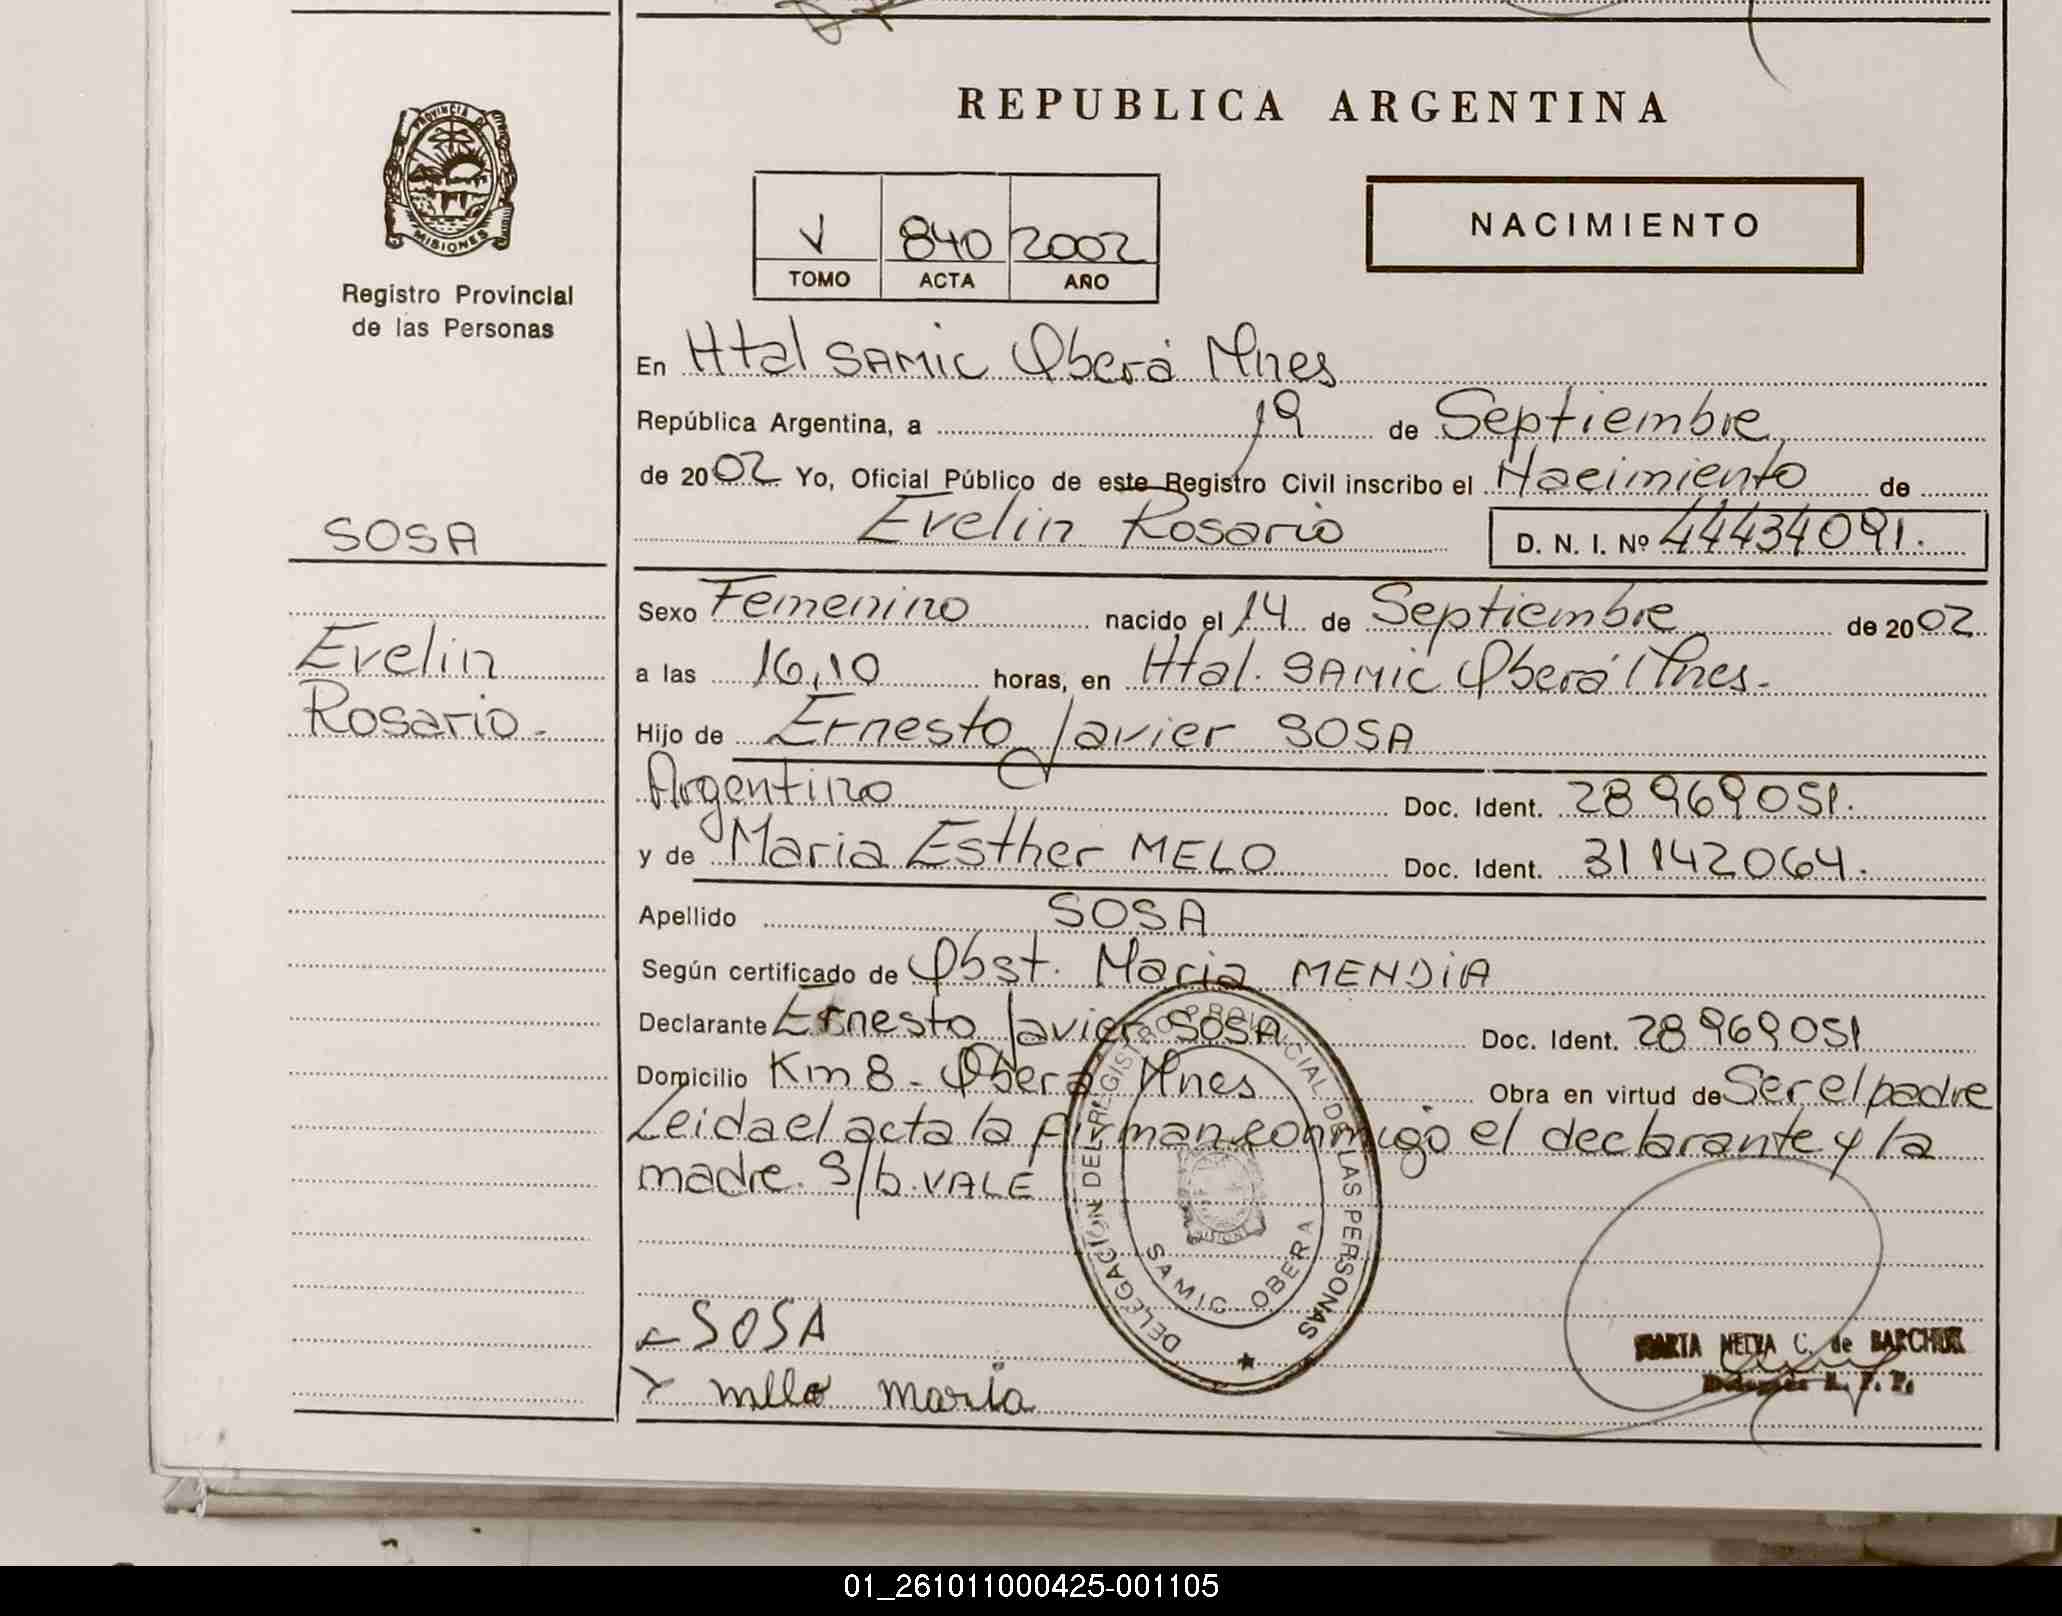 REPUBLICA ARGENTINA
PROVINCIA DE
MISIONES
Registro Provincial
de las Personas
V 840 2002
TOMO ACTA AÑO
NACIMIENTO
En Htal SAMIC Oberá Mnes
República Argentina, a 19 de Septiembre
de 2002 Yo, Oficial Público de este Registro Civil inscribo el Nacimiento de
Evelin Rosario D. N. I. Nº 44434091.
SOSA
Evelin
Rosario.-
Sexo Femenino nacido el 14 de Septiembre de 2002
a las 16,10 horas, en Htal. SAMIC Oberá Mnes.-
Hijo de Ernesto Javier SOSA
Argentino Doc. Ident. 28969051.
y de Maria Esther MELO Doc. Ident. 31142064.
Apellido SOSA
Según certificado de Obst. Maria MENDIA
Declarante Ernesto Javier SOSA Doc. Ident. 28969051
Domicilio Km 8 - Oberá Mnes Obra en virtud de Ser el padre
Leida el acta la firman conmigo el declarante y la
madre. S/b. VALE
DELEGACION DEL REGISTRO PROVINCIAL DE LAS PERSONAS
MISIONES
SAMIC OBERA
SOSA
mllo maria
MARIA NELVA C. de
R. P. P.
01_261011000425-001105